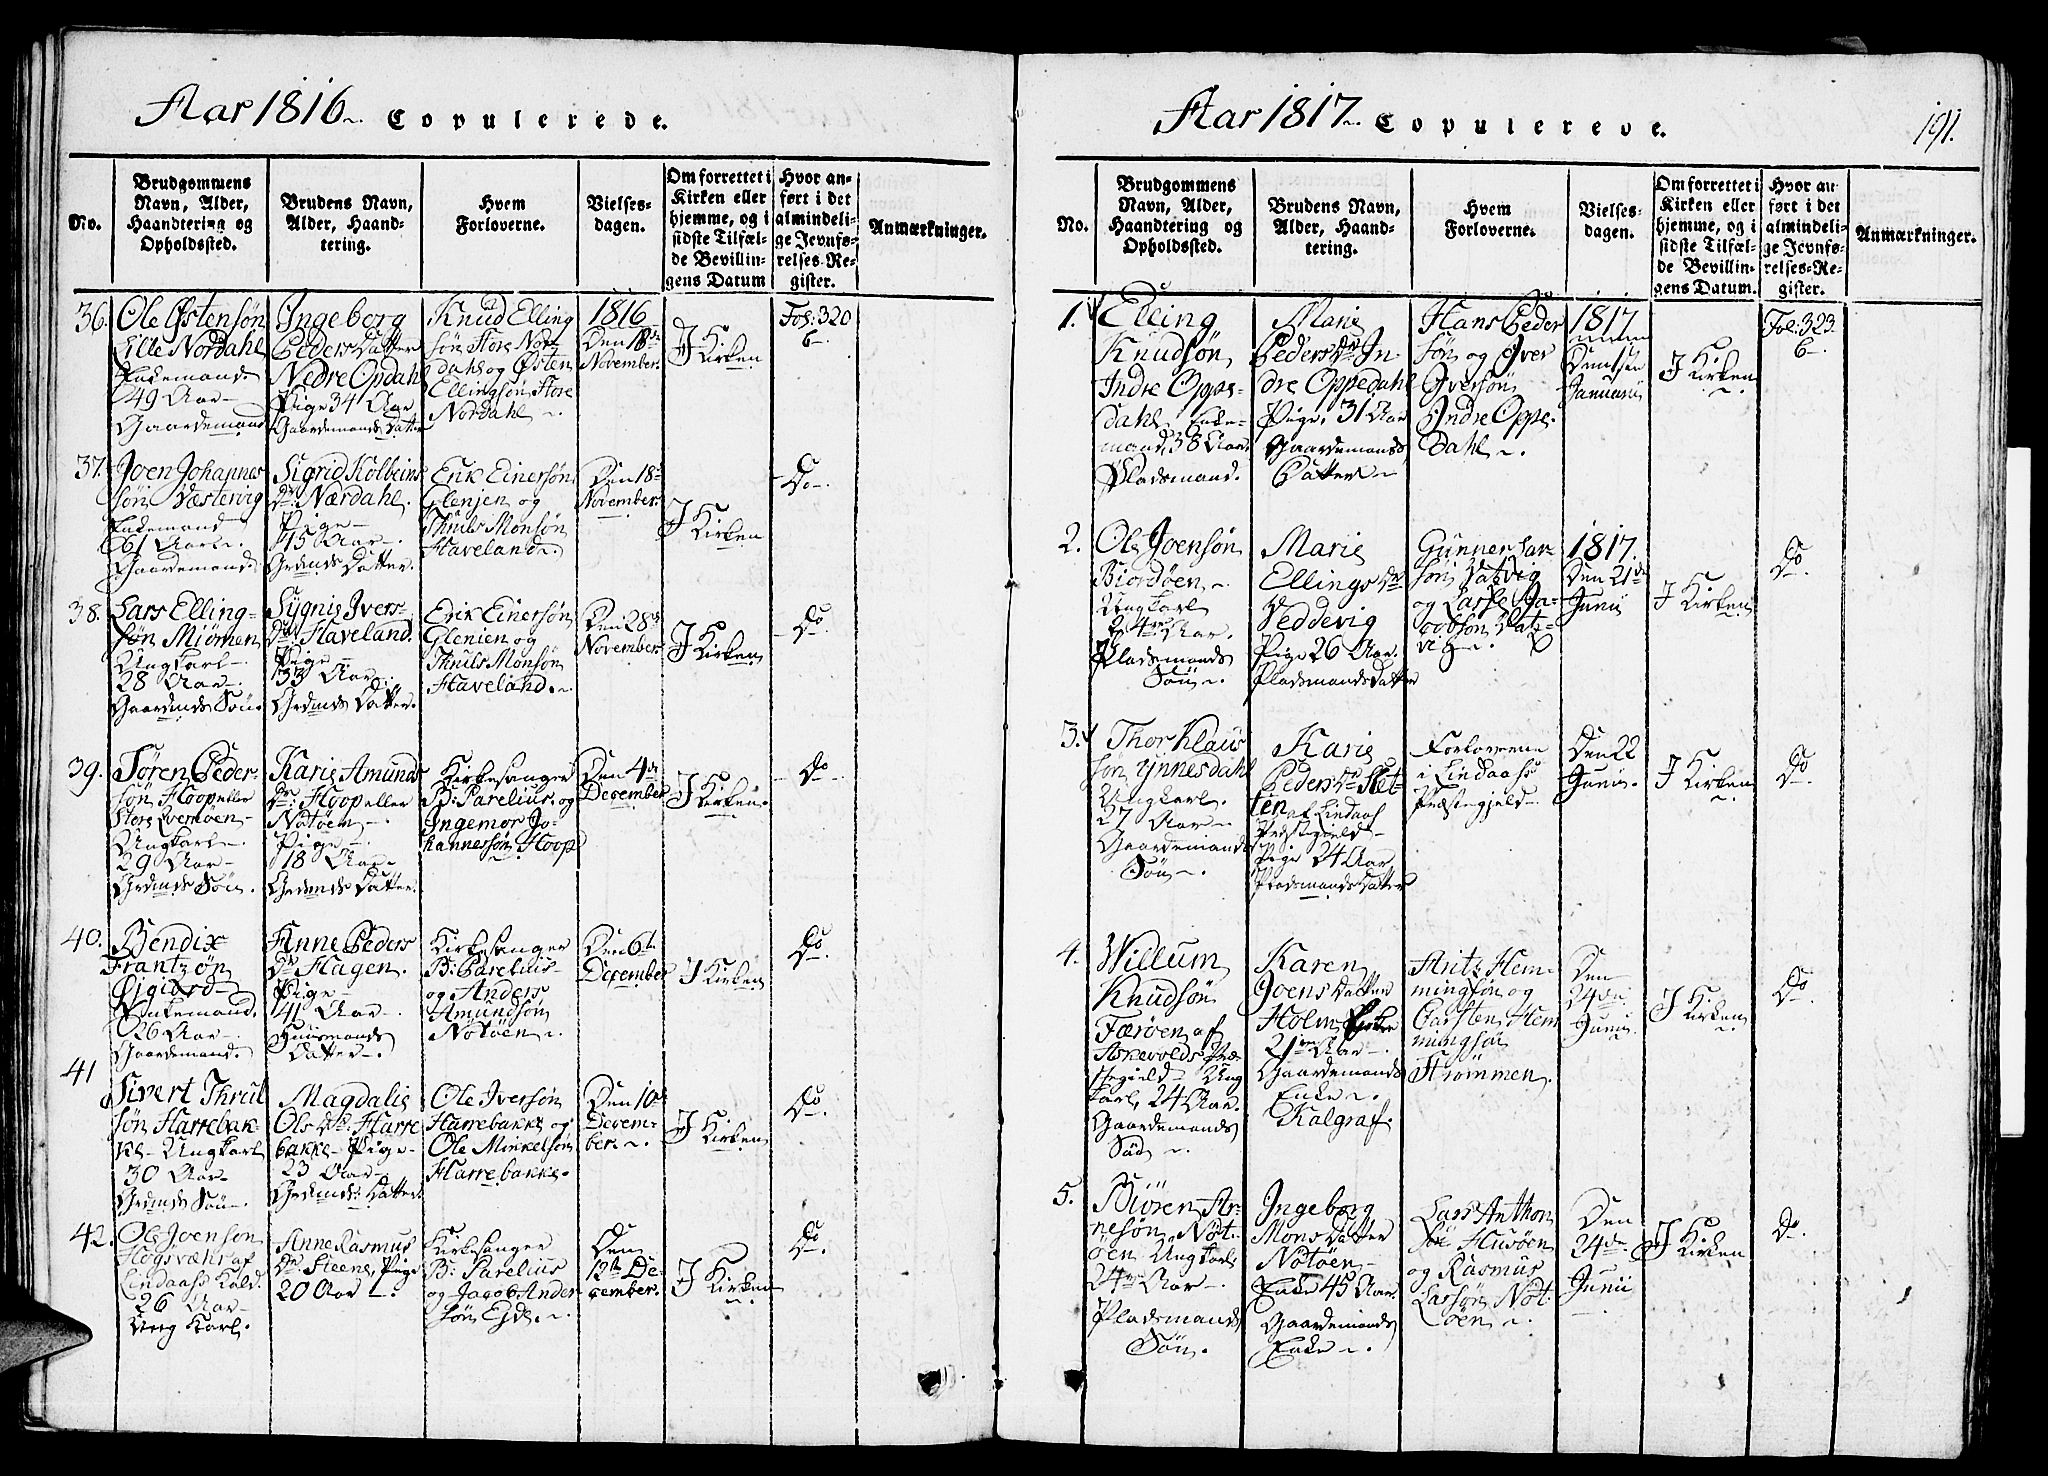 Aar 1816 Copulerede.
No.
Brudgommens
Navn, Alder,
Haandtering og
Opholdssted.
Brudens Navn,
Alder, Haand-
tering.
Hvem
Forloverne.
Vielses-
dagen.
Om forrettet i
Kirken eller
hjemme, og i
sidste Tilfæl-
de Bevillin-
gens Datum
Hvor an-
ført i det
almindeli-
ge Jevnfø-
relses-Re-
gister.
Anmærkninger.
36.
Ole Østensøn
Lille Nordahl
Enkemand
49 Aar
Gaardemand
Ingeborg
Peders Datter
Nedre Opdahl
Pige 34 Aar
Gaardemands Datter
Knud Elling
søn Store Nor
dahl og Østen
Ellingsøn Store
Nordahl
1816
Den 18de
November.
J Kirken
Fol: 320
6
37.
Joen Johannes
søn Væstervig
Enkemand
61 Aar
Gaardemand
Sigrid Kolbeins
Dr. Nærdahl.
Pige
15 Aar
Grdmds Datter.
Erik Einersøn
Glenjen og
Thnils Monsøn
Haveland
Den 18de
November.
J Kirken
Do
38.
Lars Elling-
søn Miømen
Ungkarl
28 Aar
Gaardmds Søn.
Sygnis Ivers-
Dr. Haveland.
Pige
33 Aar
Grdmds Datter.
Erik Einersøn
Glenien og
Thnils Monsøn
Haveland.
Den 28de
November
J Kirken
Do
39.
Søren Peder-
søn Hoop eller
Store
Ungkarl
29 Aar
Grdmds Søn.
Karis Amunds
Dr: Hoop eller
Notøen
Pige
18 Aar
Grdmds Datter.
Kirkesanger
B: Parelius og
Ingemor Jo-
hannessøn Hoop
Den 4de
December
J Kirken.
Do
40.
Bendix
Frantzøn
Enkemand.
26 Aar
Gaardemand.
Anne Peders
Dr Hagen.
Pige
41 Aar
Huusmands
Datter
Kirkesanger
B: Parelius
og Anders
Amundsøn
Nötöen
Den 6te
December
J Kirken
Do
41
Sivert Thrul
søn Harrebak-
ke Ungkarl
30 Aar
Grdmds Søn
Magdalis
Ols Dr. Harre
bakke Pige
23 Aar
Grdmds: Datter
Ole Iversøn
Harrebakke og
Ole Mikkelsøn
Harrebakke.
Den 10de
Decem-
ber.
J Kirken
Do
42.
Ole Joensøn
af
Lindaas Kald.
26 Aar
Ung Karl.
Anne Rasmus
Dr. Steene, Pige
20 Aar
Kirkesanger
B: Parelius
og Jacob Ander
søn Eide.
Den
12te De-
cember.
J Kirken
Do
Aar 1817. Copulerede.
191.
No.
Brudgommens
Navn, Alder,
Haandtering og
Opholdssted.
Brudens Navn,
Alder, Haand-
tering.
Hvem
Forloverne.
Vielses-
dagen.
Om forrettet i
Kirken eller
hjemme, og i
sidste Tilfæl-
de Bevillin-
gens Datum.
Hvor an
ført i det
almindeli-
ge Jevnfø-
relses-Re-
gister.
Anmærkninger.
1.
Elling
Knudsøn
Indre Oppe-
dahl, Enke-
mand, 38 Aar.
Pladsmand.
Marie
Peders Dr In-
dre Oppedahl
Pige, 31 Aar
Gaardemands
Datter
Hans Peder
søn og Iver
Iversøn
Indre Oppe.
Dahl
1817
Januarii
J Kirken
Fol: 323
6
2.
Ole Joensøn
Biordøen
Ungkarl
24 Aar.
Pladsmands
Søn
Marie
Ellings Dr
Veddevig
Pige 26 Aar.
Pladsmands Datter
Gunner Lar-
søn
og Lasse Ja-
cobsøn
vig
1817.
Den 21de
Junii
J Kirken
Do
3.
Thor Klaus
søn Ynnesdahl
Ungkarl.
27 Aar
Gaardemands
Søn
Karie
Peders Dr Slet-
ten af Lindaas
Præstegield
Pige 24 Aar
Pladsmands Datter
Forloverne
i Lindaas
Præstegield
Den 22
Junii
J Kirken
Do
4.
Willum
Knudsøn
Færøen af
Askevolds Præ-
stegield Ung
karl, 24 Aar.
Gaardemands
Søn
Karen
Joens Datter
Holm
21 Aar
Gaardemands
Enke
Kalgraf.
Fritz Hem-
mingsøn og
Carsten Hem
mingsøn
Strømmen.
Den
24de
Junii
J Kirken
Do
5.
Biøren Ar-
nesøn Nöt-
öen Ungkarl
24 Aar
Pladsmands
Søn.
Ingeborg
Mons Datter
Nötöen
Enke 45 Aar.
Gaardemands
Enke
Lars Anthon
søn Husöen
og Rasmus
Larsøn Nöt-
öen
Den
24de
Junii
J Kirken
Do.